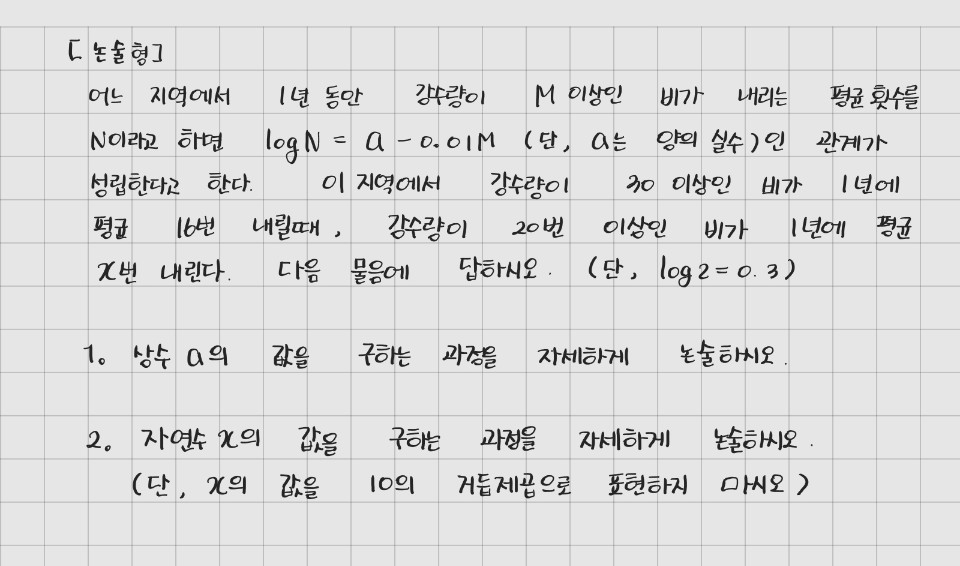 [논술형]
어느 지역에서 1년 동안 강수량이 M 이상인 비가 내리는 평균 횟수를
N이라고 하면 logN = a - 0.01M (단, a는 양의 실수)인 관계가
성립한다고 한다. 이 지역에서 강수량이 30 이상인 비가 1년에
평균 16번 내릴때, 강수량이 20번 이상인 비가 1년에 평균
x번 내린다. 다음 물음에 답하시오. (단, log2=0.3)
1. 상수 a의 값을 구하는 과정을 자세하게 논술하시오.
2. 자연수 x의 값을 구하는 과정을 자세하게 논술하시오.
(단, x의 값을 10의 거듭제곱으로 표현하지 마시오)